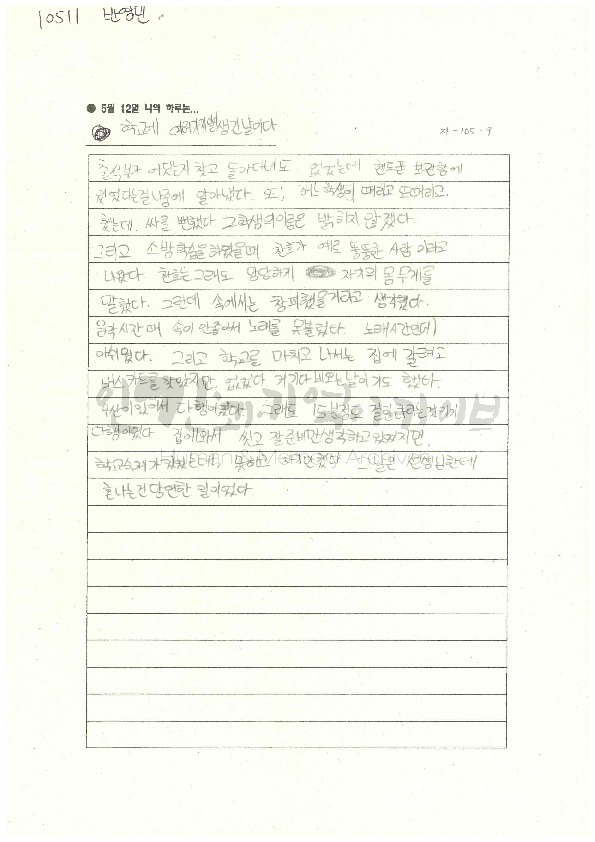 10511 반영빈
● 5월 12일 나의 하루는...
학교에 생긴날이다
지-105-9
출석부가 어딧는지 찾고 돌아다녀도 없었는데 핸드폰 보관함에
있었다는걸 나중에 알아냈다. 또, 어느 학생이 때리고 또때리고,
했는데. 싸울 뻔했다 그학생의이름은 밝히지 않겠다.
그리고 소방학습을 하였을때 찬호가 예로 뚱뚱한 사람 이라고
나왔다 찬호는 그래도 담담하게 자기의 몸무게를
말했다. 그런데 속에서는 창피했을거라고 생각했다.
음악시간때 속이 안좋아서 노래를 못불렀다. 노래시간인데)
아쉬웠다. 그리고 학교를 마치고 나서는 집에 갈려고
버스카드를 찾았지만, 없었다 거기다 비오는날이기도 했다.
우산이있어서 다행이였다. 그래도 15분정도 걸린
다행이였다 집에와서 씻고 잘준비만생각하고 있었지만,
학교숙제가 있었는데, 못하고 선생님한테
혼나는건 당연한 일이였다
인권기억아카이브
Human & Memory Archives